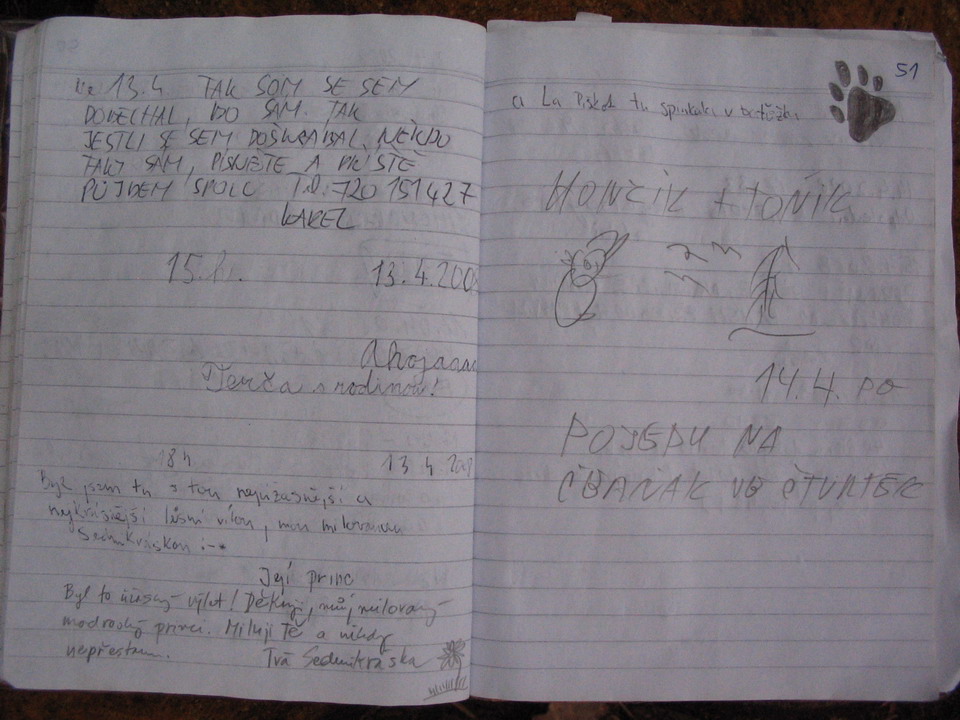 13.4 TAK SOM SE SEM
DOBECHAL, BO SAM. TAK
JESTLI SE SEM DOSKRABAL NĚKDO
TAKY SAM, PISKNĚTE A PŘÍŠTĚ
PŮJDEM SPOLU T.Č.: 720 151 427
KAREL
15.h. 13.4.200
Ahojaaa
Terča s rodinou!
18h 13 4 200
Byl jsem tu s tou nejúžasnější a
nejkrásnější lesní vílou, mou milovanou
Sedmikráskou :-*
Její princ
Byl to úžasný výlet! Děkuji, můj milovaný
modrooký princi. Miluji Tě a nikdy
nepřestanu. Tvá Sedmikráska
51
a La Piskot tu spinkaki v
HONČÍK + TONÍK
14.4. PO
POJEDU NA
ČBANÁK VE ČTVRTEK